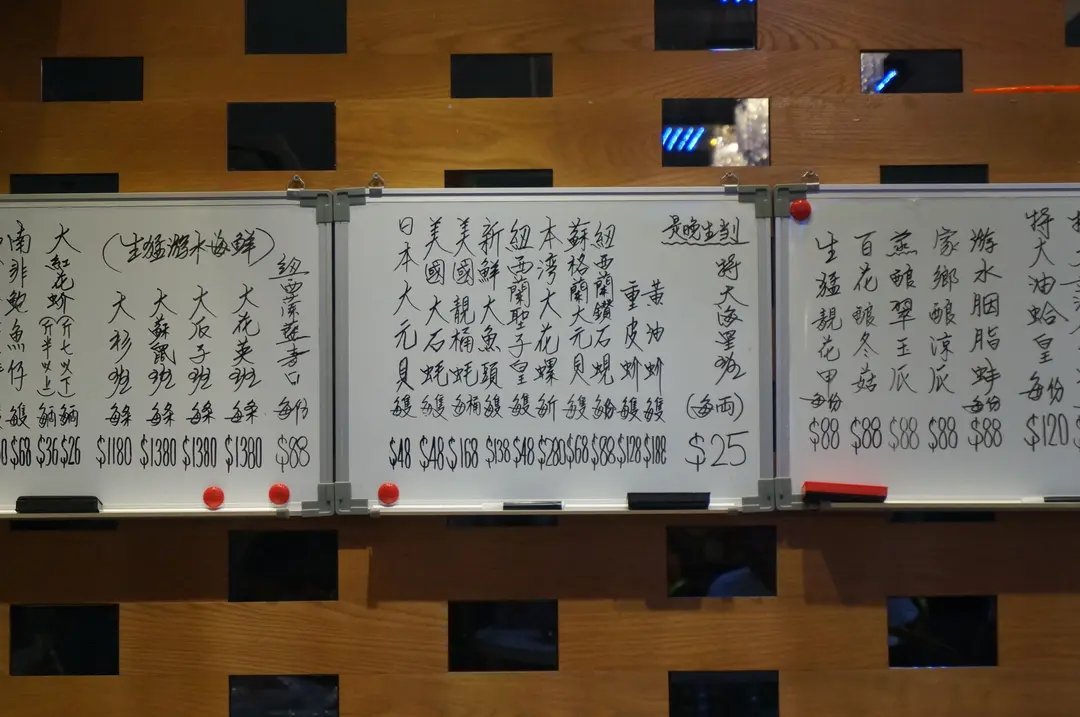 特大油蛤皇 每份 $120
游水胭脂蚌 每份 $88
家鄉釀涼瓜 $88
釀翠玉瓜 $88
百花釀冬菇 $88
生猛靚花甲 每份 $88
是晚生劏
特大海星班 (每両) $25
黄油蚧 每隻 $188
重皮蚧 每隻 $128
紐西蘭鑽石蜆 每份 $88
蘇格蘭大元貝 每隻 $68
本湾大花螺 每斤 $280
紐西蘭聖子皇 每隻 $48
新鮮大魚頭 每隻 $138
美國靚桶蚝 每桶 $168
美國大石蚝 每隻 $48
日本大元貝 每隻 $48
(生猛游水海鮮)
紐西蘭藍青口 每份 $88
大花英班 每条 $1380
大瓜子班 每条 $1380
大蘇鼠班 每条 $1380
大杉班 每条 $1180
大紅花蚧
(斤七以下) 每両 $26
(斤半以上) 每両 $36
南非鮑魚仔 每隻 $68